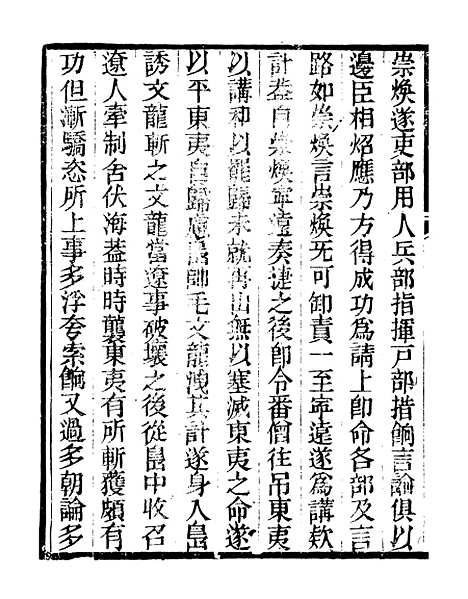 崇煥遂吏部用人兵部指揮戸部措餉言論俱以
邊臣相炤應乃方得成功為請上卽命各部及言
路如崇煥言崇煥旡可卸責一至寧遠遂為講欵
計葢自崇煥寧遠奏捷之後卽令番僧往吊東夷
以講和以罷歸未就再出無以塞滅東夷之命遂
以平東夷自歸慮島帥毛文龍洩其計遂身入島
誘文龍斬之文龍當遼事破壞之後從島中收召
遼人牽制舍伏海葢時時襲東夷有所斬獲頗有
功但漸驕恣所上事多浮夸索餉又過多朝論多